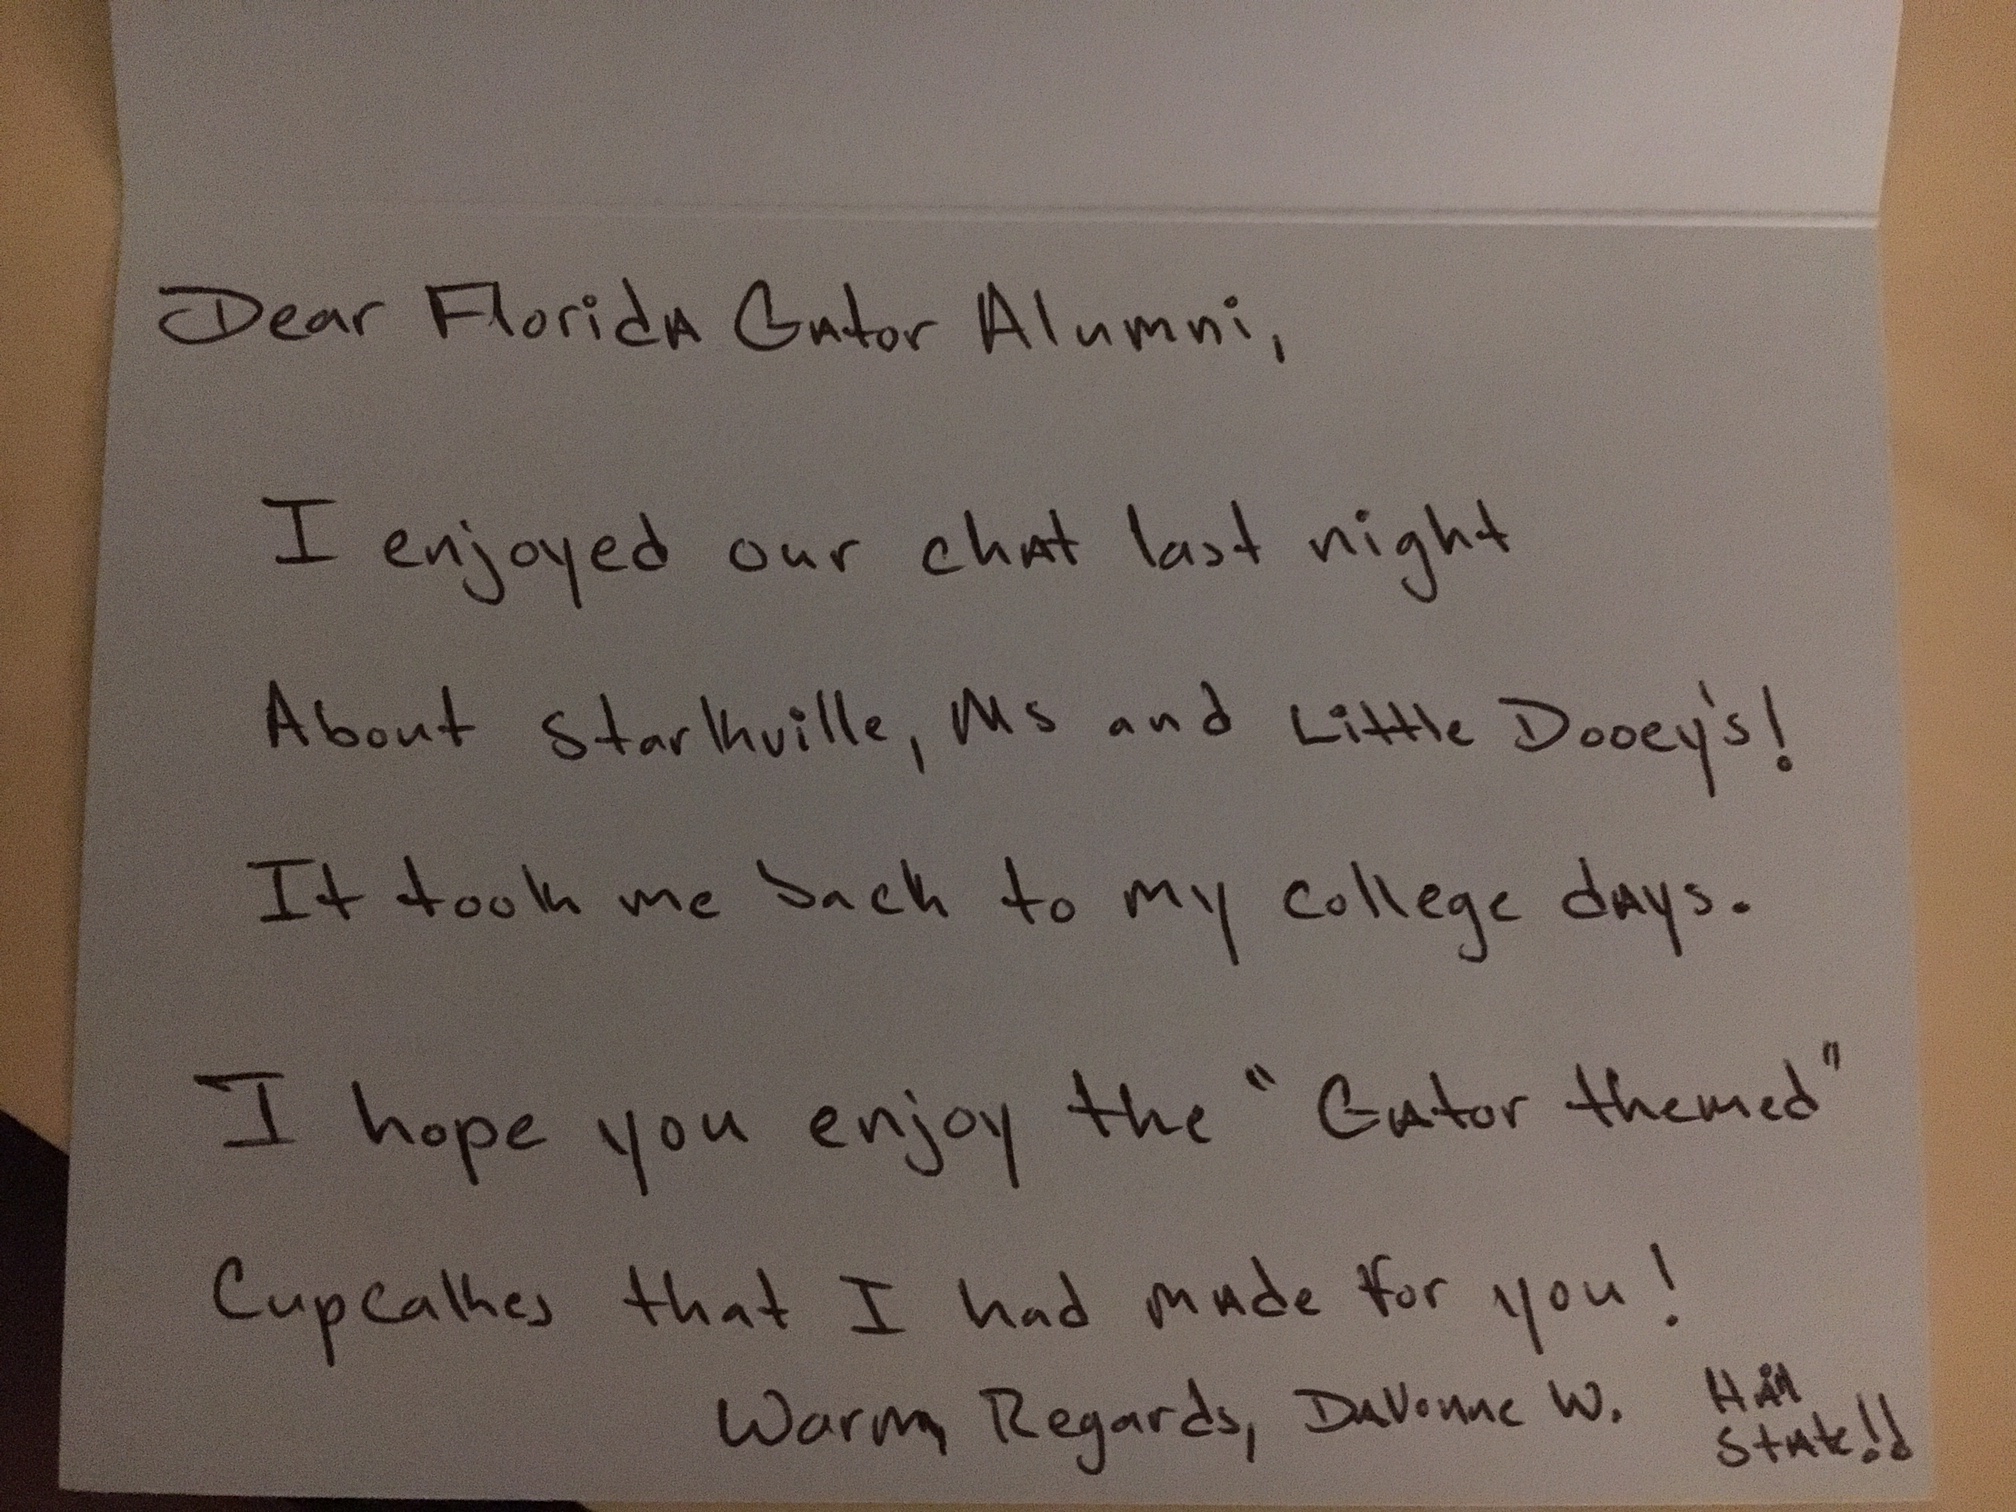 Dear Florida Gator Alumni,
I enjoyed our chat last night
About Starkville, Ms and Little Dooey's!
It took me back to my college days.
I hope you enjoy the "Gator themed"
Cupcakes that I had made for you!
Warm Regards, DaVonne W.
Hail
State!!